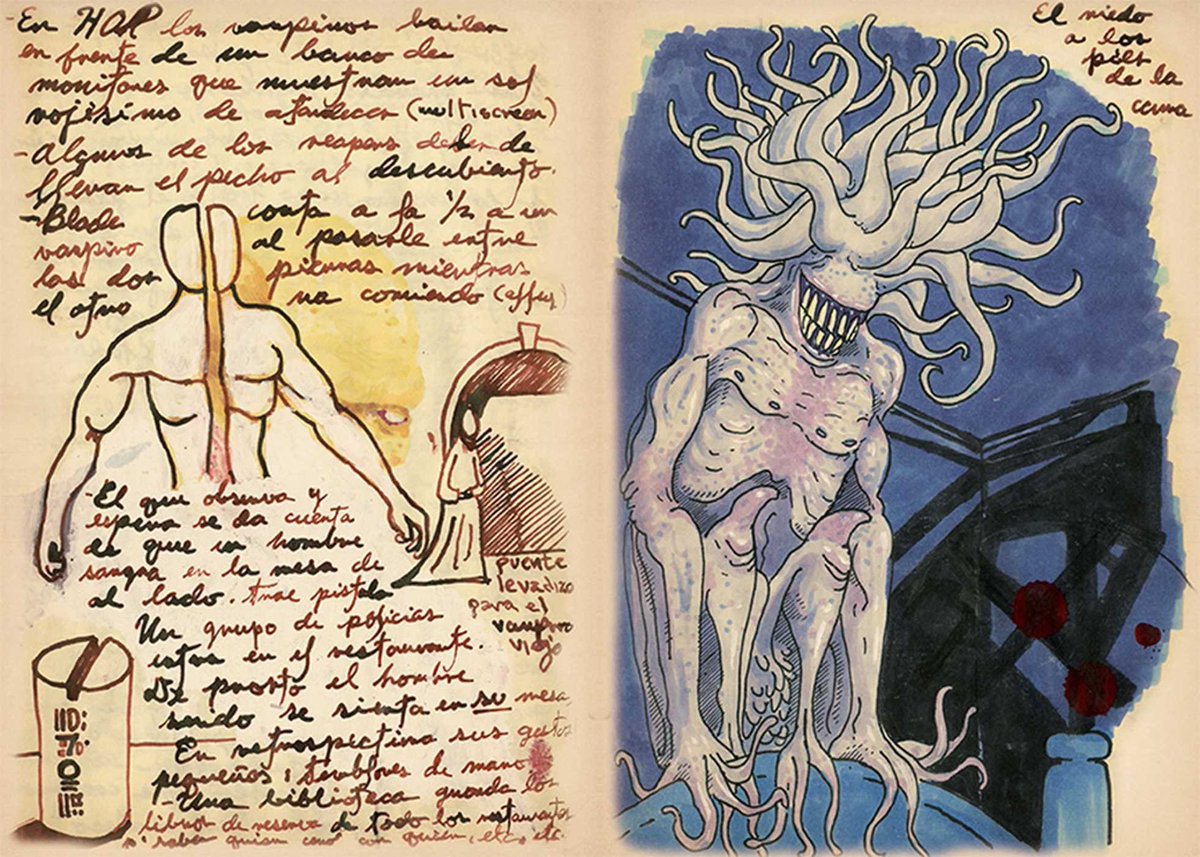 En HOP los vampiros bailan
en frente de un banco de
monitores que muestran un sol
rojísimo de atardecer (multiscreen)
-Algunos de los reapers deben de
llevan el pecho al descubierto.
-Blade corta a la 1/2 a un
vampiro al pasarle entre
las dos piernas mientras
el otro va comiendo (effex)
-El que observa y
espera se da cuenta
de que un hombre
sangra en la mesa de
al lado. Trae pistola
Un grupo de policías
estan en el restaurante.
De pronto el hombre
se sienta en su mesa
En retrospectiva sus gestos
pequeños: temblores de mano
-Una biblioteca guarda los
libros de reserva de todo los restaurantes
p' saber quien cenó con quien, etc, etc.
puente
levadizo
para el
vampiro
viejo
El miedo
a los
pies
de la
cama